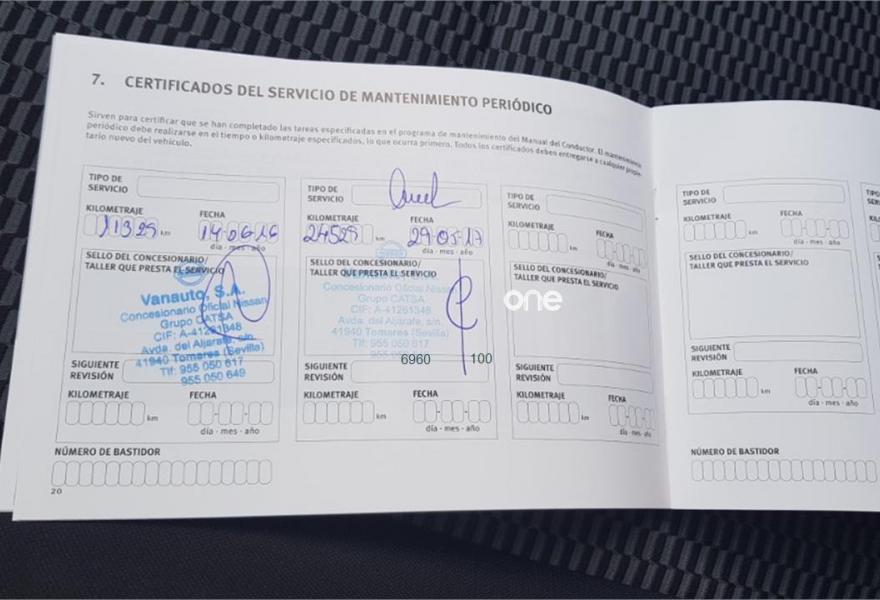 7. CERTIFICADOS DEL SERVICIO DE MANTENIMIENTO PERIÓDICO
Sirven para certificar que se han completado las tareas especificadas en el programa de mantenimiento del Manual del Conductor. El mantenimiento
periódico debe realizarse en el tiempo o kilometraje especificados, lo que ocurra primero. Todos los certificados deben entregarse a cualquier propie-
tario nuevo del vehículo.
TIPO DE
SERVICIO
KILOMETRAJE FECHA
11329 km 14-06-16
día - mes - año
SELLO DEL CONCESIONARIO/
TALLER QUE PRESTA EL SERVICIO
Vanauto, S.A.
Concesionario Oficial Nissan
Grupo CATSA
CIF: A-41261348
Avda. del Aljarafe, s/n
41940 Tomares (Sevilla)
Tlf: 955 050 617
955 050 649
SIGUIENTE
REVISIÓN
KILOMETRAJE FECHA
km
día - mes - año
NÚMERO DE BASTIDOR
20
TIPO DE
SERVICIO
KILOMETRAJE FECHA
24529 km 29-05-17
día - mes - año
SELLO DEL CONCESIONARIO/
TALLER QUE PRESTA EL SERVICIO
Concesionario Oficial Nissan
Grupo CATSA
CIF: A-41261348
Avda. del Aljarafe, s/n.
41940 Tomares (Sevilla)
Tlf: 955 050 617
6960 100
SIGUIENTE
REVISIÓN
KILOMETRAJE FECHA
km
día - mes - año
TIPO DE
SERVICIO
KILOMETRAJE FECHA
km
día - mes - año
SELLO DEL CONCESIONARIO/
TALLER QUE PRESTA EL SERVICIO
one
SIGUIENTE
REVISIÓN
KILOMETRAJE FECHA
km
día - mes - año
TIPO DE
SERVICIO
KILOMETRAJE FECHA
km
día - mes - año
SELLO DEL CONCESIONARIO/
TALLER QUE PRESTA EL SERVICIO
SIGUIENTE
REVISIÓN
KILOMETRAJE FECHA
km
día - mes - año
NÚMERO DE BASTIDOR